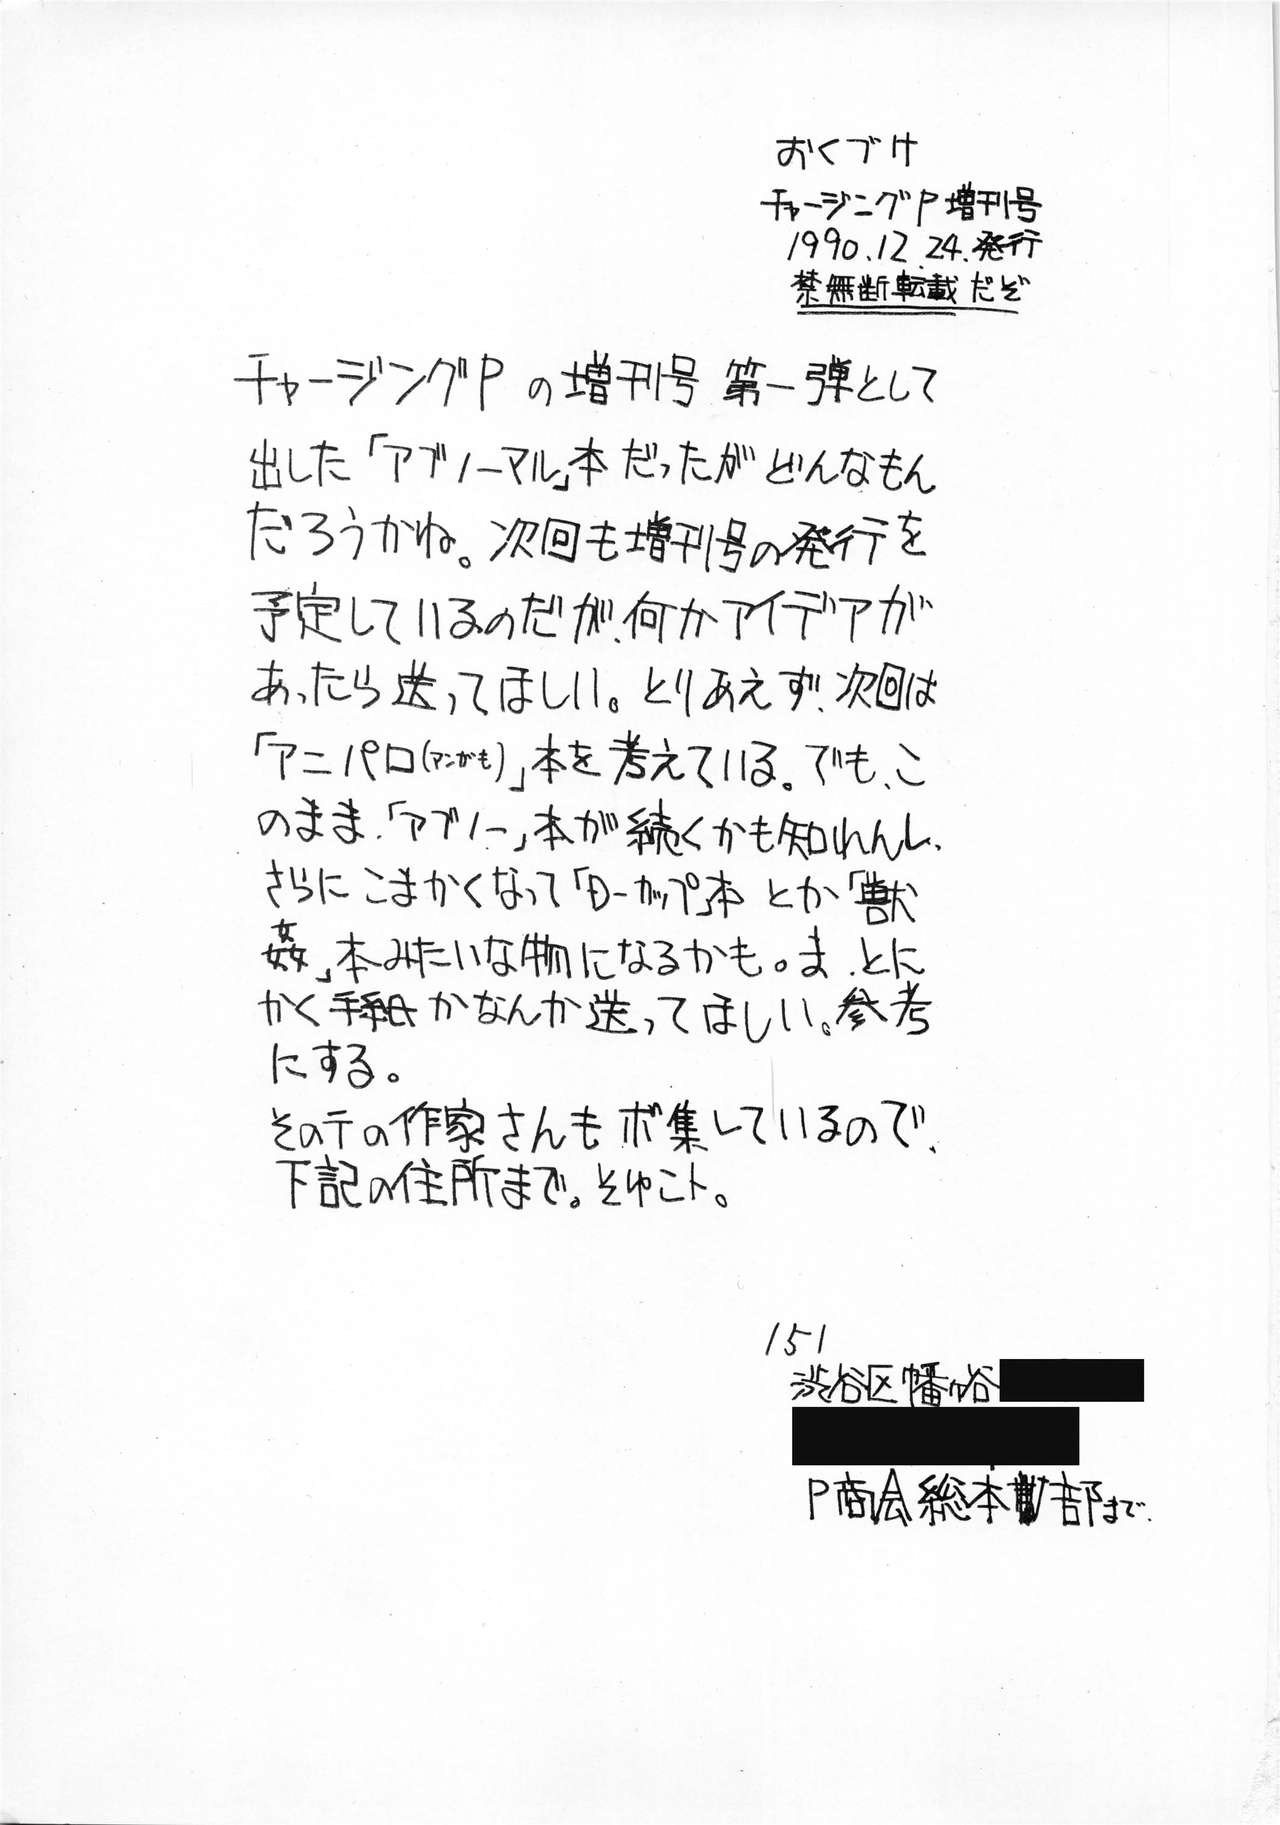 おくづけ
チャージングP増刊号
1990.12.24.発行
禁無断転載だぞ
チャージングPの増刊号 第一弾として
出した「アブノーマル」本だったがどんなもん
だろうかね。次回も増刊号の発行を
予定しているのだが、何かアイデアが
あったら送ってほしい。とりあえず、次回は
「アニパロ(マンガも)」本を考えている。でも、こ
のまま、「アブノー」本が続くかも知れんし、
さらにこまかくなって「Dーカップ」本とか「獣
姦」本みたいな物になるかも。ま、とに
かく手紙かなんか送ってほしい。参考
にする。
そのテの作家さんもボ集しているので、
下記の住所まで。そゆこト。
151
渋谷区幡ヶ谷
P商会総本部まで.